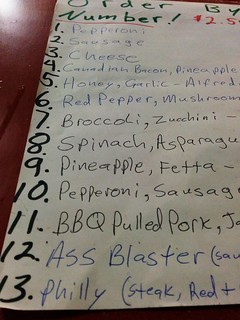 Order By
Number! $2.5
1. Pepperoni
2. Sausage
3. Cheese
4. Canadian Bacon, Pineapple
5. Honey, Garlic - Alfred
6. Red Pepper, Mushroom
7. Broccoli, Zucchini -
8. Spinach, Asparagu
9. Pineapple, Fetta -
10. Pepperoni, Sausag
11. BBQ Pulled Pork, Ja
12. ASS Blaster (sau
13. Philly (steak, Red +